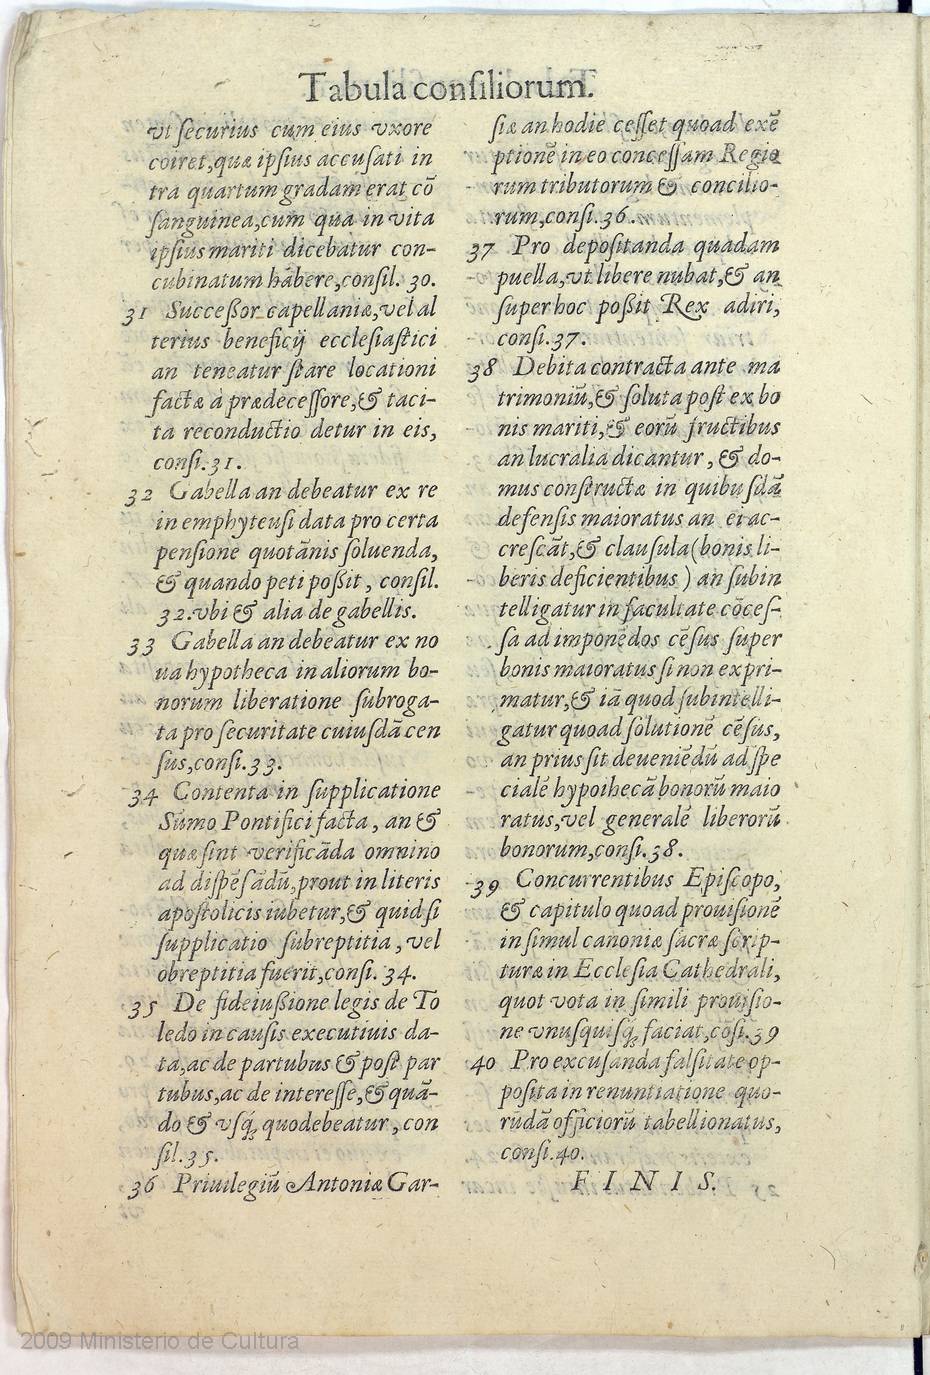 Tabula consiliorum.
vt ſecurius cum eius vxore
coiret,quæ ipſius accuſati in
tra quartum gradam erat cō
ſanguinea,cum qua in vita
ipſius mariti dicebatur con-
cubinatum hábere,conſil. 30.
31 Succeßor capellaniæ,vel al
terius beneficij eccleſiaſtici
an teneatur ſtare locationi
factæ à prædeceſſore,& taci-
ta reconductio detur in eis,
conſi.31.
32 Gabella an debeatur ex re
in emphyteuſi data pro certa
penſione quotānis ſoluenda,
& quando peti poßit, conſil.
32.vbi & alia de gabellis.
33 Gabella an debeatur ex no
ua hypotheca in aliorum bo-
norum liberatione ſubroga-
ta pro ſecuritate cuiuſdā cen
ſus,conſi.33.
34 Contenta in ſupplicatione
Sūmo Pontifici facta, an &
quæ ſint verificāda omnino
ad diſpēſādū,prout in literis
apoſtolicis iubetur,& quid ſi
ſupplicatio ſubreptitia, vel
obreptitia fuerit,conſi. 34.
35 De fideiußione legis de To
ledo in cauſis executiuis da-
ta,ac de partubus & poſt par
tubus,ac de intereſſe,& quā-
do & vſq; quo debeatur, con
ſil.35.
36 Priuilegiū Antoniæ Gar-
ſiæ an hodie ceſſet quoad exē
ptionē in eo conceſſam Regio
rum tributorum & concilio-
rum,conſi.36.
37 Pro depoſitanda quadam
puella,vt libere nubat,& an
ſuper hoc poßit Rex adiri,
conſi.37.
38 Debita contracta ante ma
trimoniū,& ſoluta poſt ex bo
nis mariti,& eorū fructibus
an lucralia dicantur, & do-
mus conſtructæ in quibuſdā
defenſis maioratus an ei ac-
creſcāt,& clauſula(bonis li-
beris deficientibus) an ſubin
telligatur in facultate cōceſ-
ſa ad imponēdos cēſus ſuper
bonis maioratus ſi non expri-
matur,& iā quod ſubintelli-
gatur quoad ſolutionē cēſus,
an prius ſit deueniēdū ad ſpe
cialē hypothecā bonorū maio
ratus,vel generalē liberorū
bonorum,conſi.38.
39 Concurrentibus Epiſcopo,
& capitulo quoad prouiſionē
in ſimul canoniæ ſacræ ſcrip-
turæ in Eccleſia Cathedrali,
quot vota in ſimili prouiſio-
ne vnuſquiſq; faciat,cōſi.39
40 Pro excuſanda falſitate op-
poſita in renuntiatione quo-
rūdā officiorū tabellionatus,
conſi.40.
F I N I S.
2009 Ministerio de Cultura